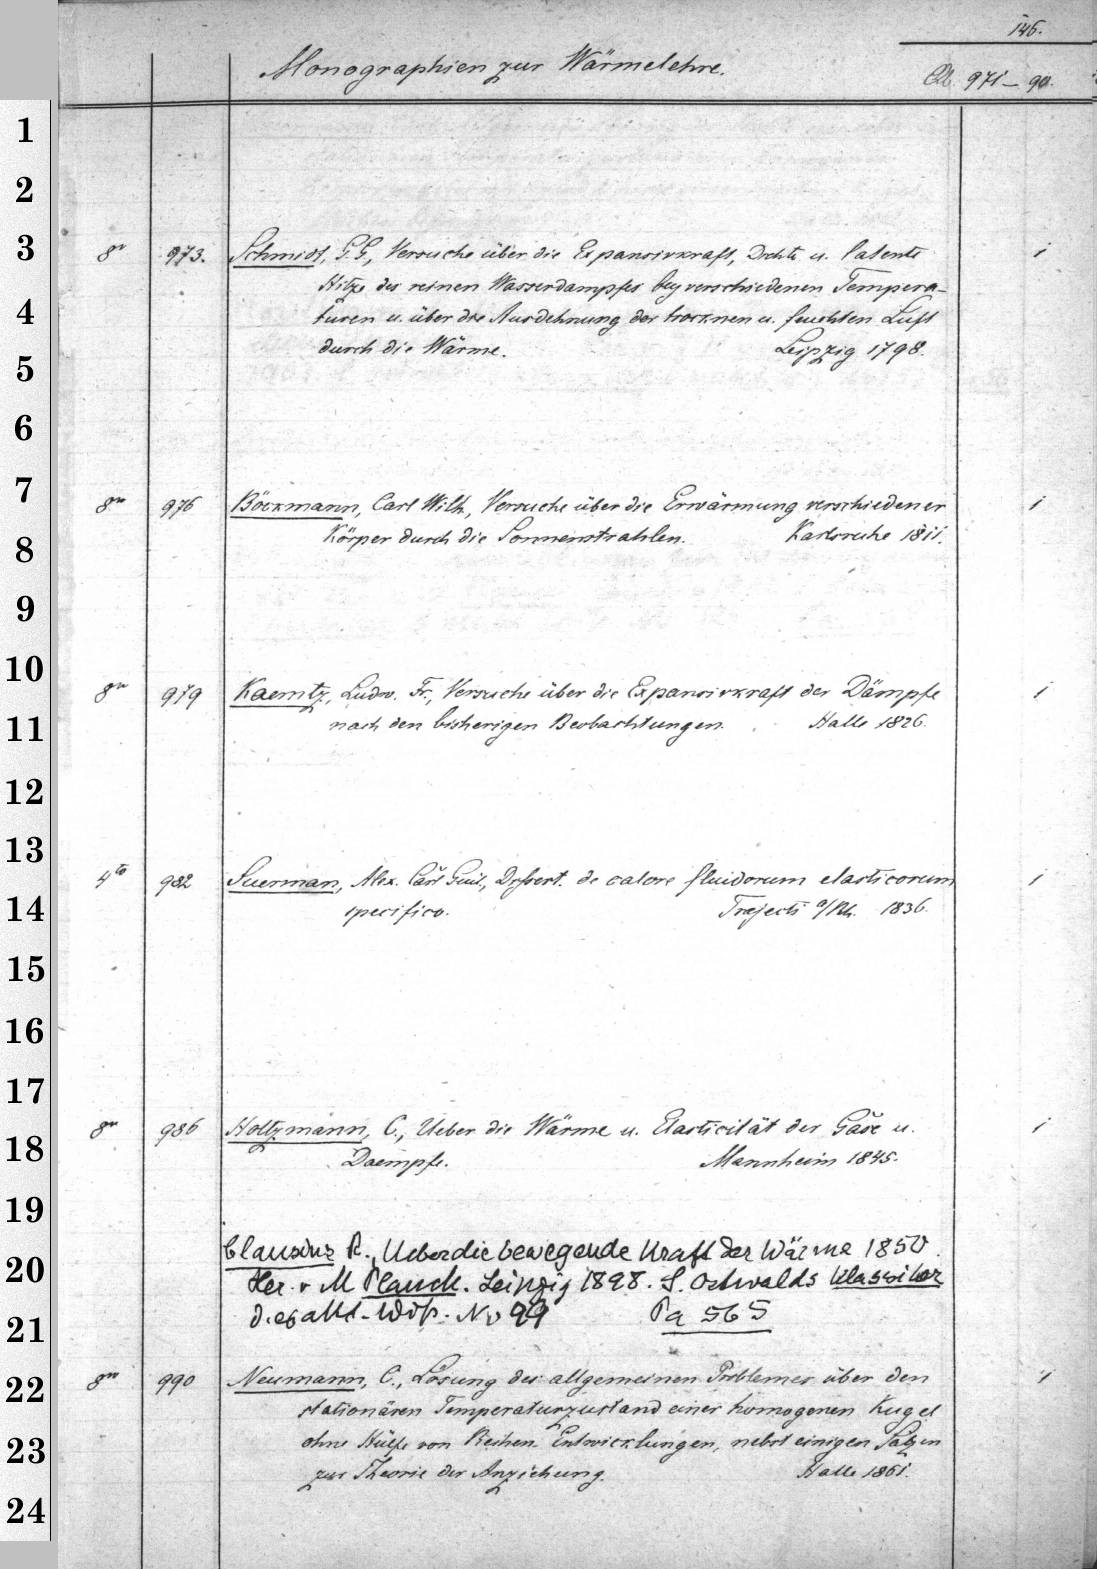 146.
Monographien zur Wärmelehre.
971–90.
1
2
3
8° 973. Schmidt, G. G., Versuche über die Expansivkraft, Dichte u. latente 1
Hitze des reinen Wasserdampfes bey verschiedenen Tempera-
4
turen u. über die Ausdehnung der trocknen u. feuchten Luft
durch die Wärme. Leipzig 1798.
5
6
7
8vo 976 Böckmann, Carl Wilh., Versuche über die Erwärmung verschiedener 1
Körper durch die Sonnenstrahlen. Karlsruhe 1811.
8
9
10
8vo 979 Kaemtz, Ludw. Fr., Versuche über die Expansivkraft der Dämpfe 1
nach den bisherigen Beobachtungen. Halle 1826.
11
12
13
4to 982 Suerman, Alex. Carl Guil., Dissert. de calore fluidorum elasticorum 1
specifico. Trajecti a/Rh. 1836.
14
15
16
17
8vo 986 Holtzmann, C., Ueber die Wärme u. Elasticität der Gase u. 1
18
Daempfe. Mannheim 1845.
19
Clausius R., Ueber die bewegende Kraft der Wärme 1850.
20
Her. v M Planck. Leipzig 1898. S. Ostwalds Klassiker
d. exakt. Wiss. No 99 Pa 565
21
8vo 990 Neumann, C., Lösung des allgemeinen Problemes über den 1
22
stationären Temperaturzustand einer homogenen Kugel
ohne Hülfe von Reihen-Entwicklungen, nebst einigen Sätzen
23
zur Theorie der Anziehung. Halle 1861.
24